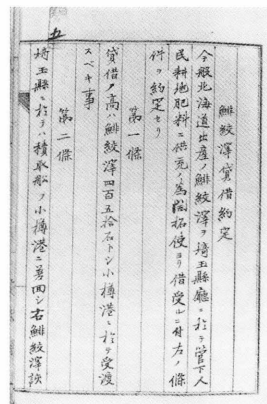 鯡絞滓貸借約定
今般北海道出産ノ鯡絞滓ヲ埼玉縣廳ニ於テ管下人
民耕地肥料ニ供充ノ為開拓使ヨリ借受ルニ付左ノ條
件ヲ約定セリ
第一條
貸借ノ高ハ鯡絞滓四百五拾石トシ小樽港ニ於テ受渡
スベキ事
第二條
埼玉縣ニ於テハ積取船ヲ小樽港ニ差回シ右鯡絞滓